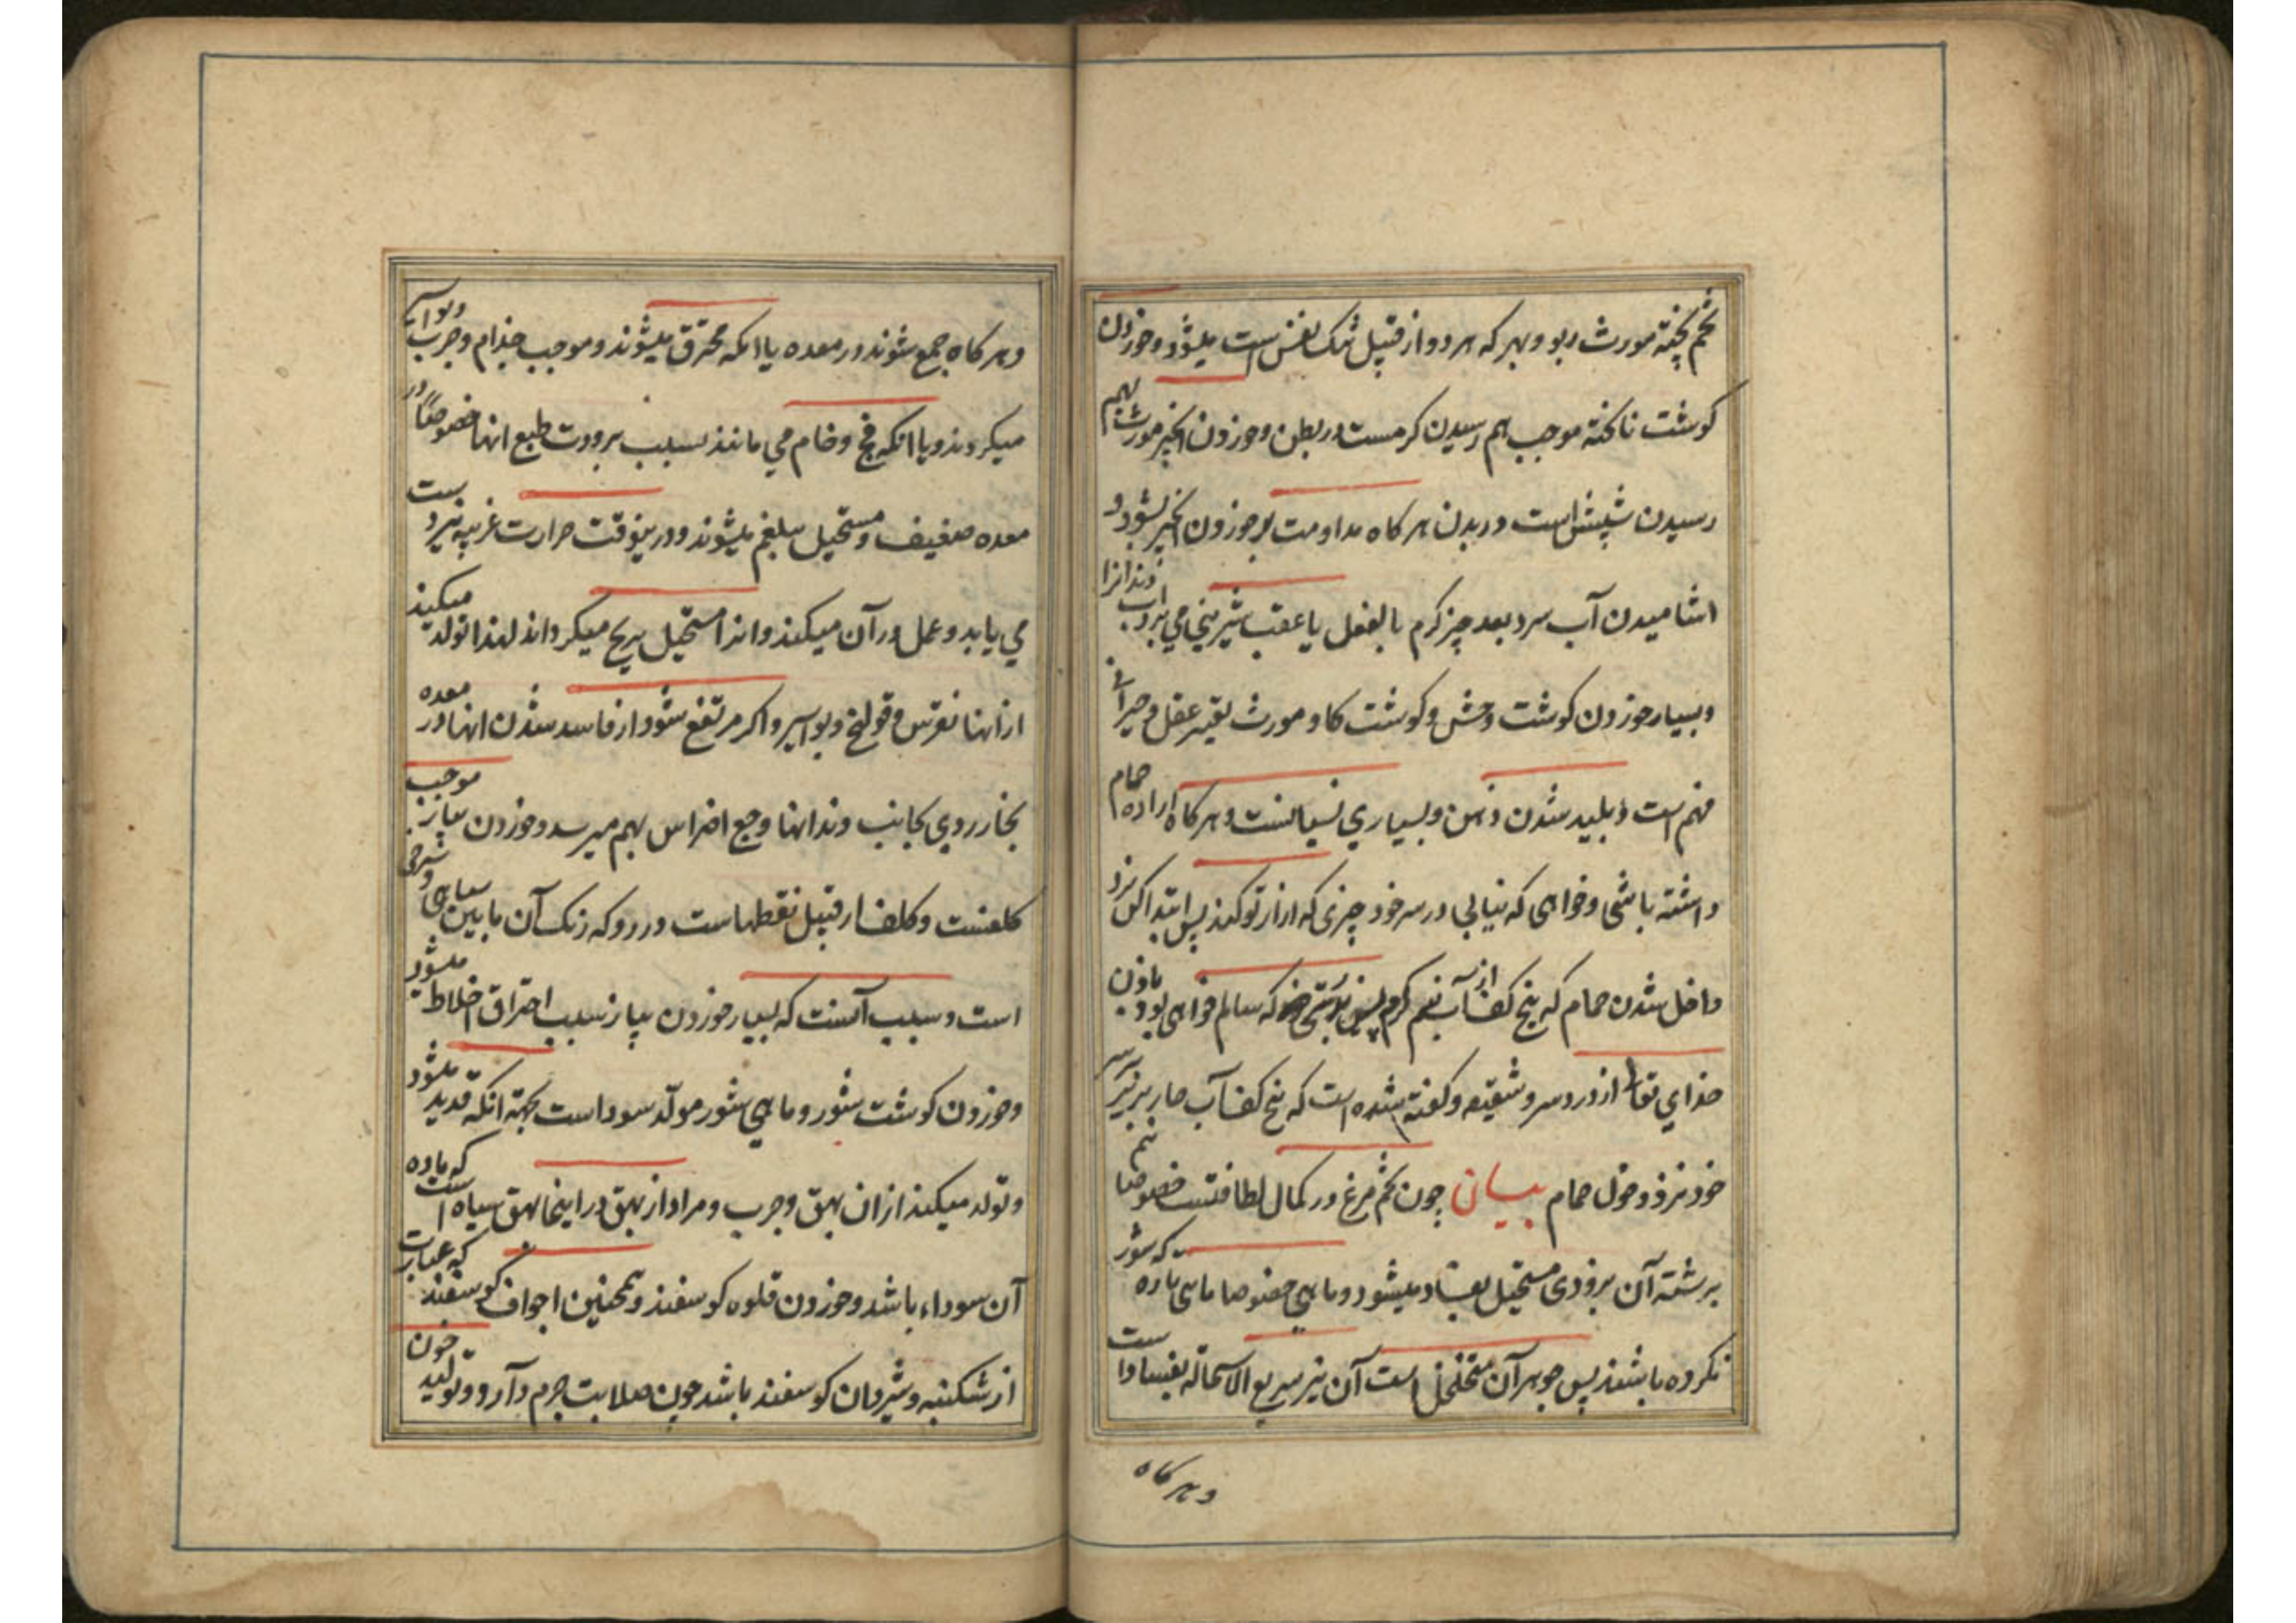 تخم پخته مورث ربو و بهر که هر دو از قبیل تنک نفس است میشود و خوردن
کوشت ناکخته موجب بهم رسیدن کرمست در بطن و خوردن انجیر مورث بهم
رسیدن شپش است در بدن هر کاه مداومت بر خوردن انجیر بشود و
اشامیدن آب سرد بعد چیز کرم بالفعل یا عقب شیرینی می برد آب دندانرا
و بسیار خوردن کوشت وحش و کوشت کاو مورث تغیر عقل و حیرانی
فهم است و بلید شدن ذهن و بسیاری نسیانست و هر کاه اراده حمام
داشته باشی و خواهی که نیابی در سر خود چیزی که ازار تو کند پس ابتدا کن نزد
داخل شدن حمام که پنج کف از آب نیم کرم که سالم خواهی بود باذن
خدای تعالی از درد سر و شقیقه و کفته شده است که پنج کف آب حار بریز بر سر
خود نزد دخول حمام بیان چون تخم مرغ در کمال لطافتست خصوصا نیم
برشته آن بزودی مستحیل بفساد میشود و ماهی خصوصا ماهی تازه که شور
نکرده باشند پس جوهر آن متخلخل است آن نیز سریع الاستحاله بفساد است
و هر کاه
و هر کاه جمع شوند در معده یا انکه محترق میشوند و موجب جذام و جرب و بواسیر
میکردند و یا انکه فج و خام می مانند بسبب برودت طبع انها خصوصاً در
معده ضعیف و مستحیل ببلغم میشوند و درینوقت حرارت غریبه نیرو
می یابد و عمل در آن میکند و انرا مستحیل بریح میکرداند لهذا تولد میکند
از انها نقرس و قولنج و بواسیر و اکر مرتفع شود از فاسد شدن انها در معده
بخار ردی بجانب دندانها وجع اضراس بهم میرسد و خوردن پیاز موجب
کلفست و کلف از قبیل نقطهاست در رو که رنک آن ما بین سیاهی و سرخی
است و سبب آنست که بسیار خوردن پیاز سبب احتراق اخلاط میشود
و خوردن کوشت شور و ماهی شور مولّد سودا است بجهة انکه قدید میشود
و تولد میکند از ان بهق و جرب و مراد از بهق در اینجا بهق سیاه است که ماده
آن سوداء باشد و خوردن قلوه کوسفند و همچنین اجواف کوسفند که عبارت
از شکنبه و شیردان کوسفند باشد چون صلابت جرم دارد و تولید خون